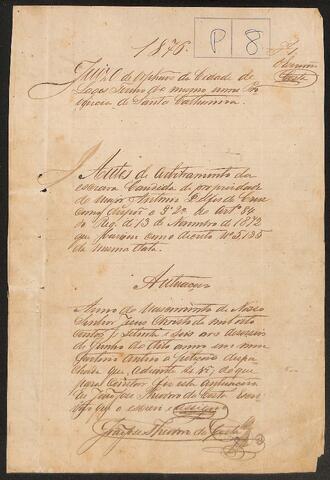 1876.
P 8
Juizo de Orphãos da Cidade de
Lages Termo do mesmo nome
de Santa Catharina
Costa
Autos de arbitramento da
escrava Candida de propriedade
do Major Antonio
o § 2º do Artº
do Reg. de 13 de Novembro de 1872
que baixou com o Decreto Nº 5135
da mesma data.
Autuação
Anno do Nascimento de Nosso
Senhor Jesus Christo de mil oito
centos e setenta e seis aos
de Junho do dito anno em meu
Cartorio autuo a petição despa
chada que adiante se vê; do que
para constar fiz esta autuação
Eu José Theodoro da Costa
que o escrevi
José Theodoro da Costa